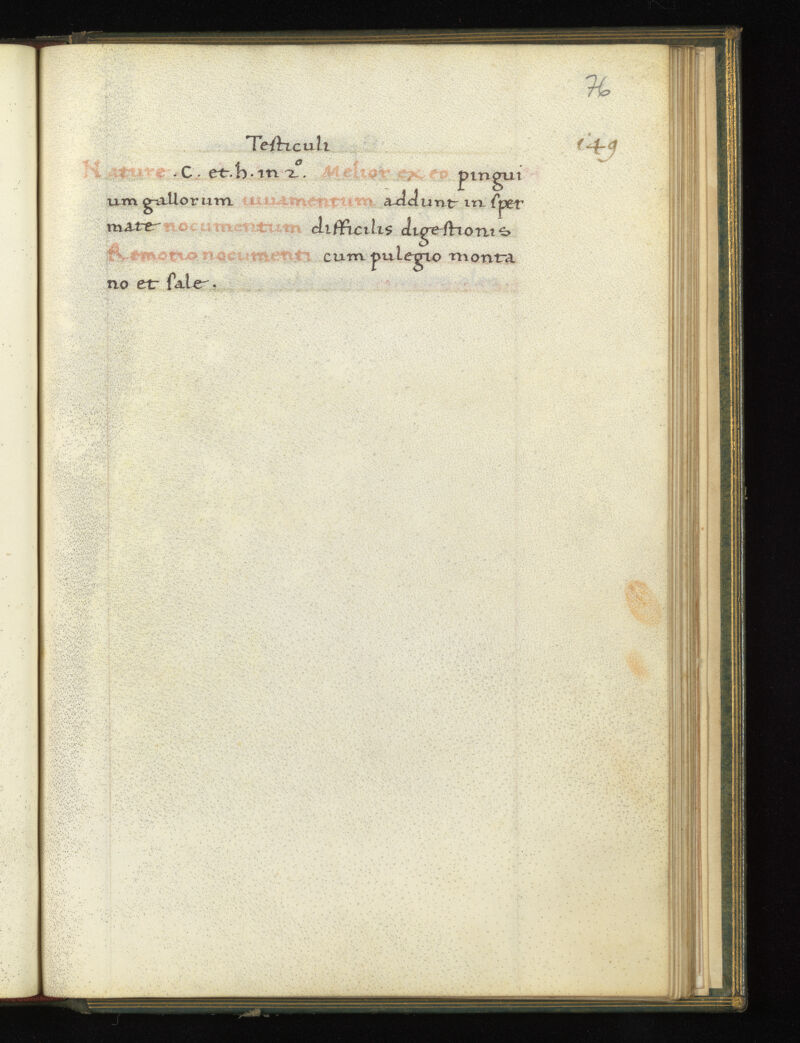 76
149
Testiculi
Nature .C. et .h. in 2º. Melior ex eo pingui
um gallorum iuuamentum addunt in sper
mate nocumentum difficilis digestionis
Remotio nocumenti cum pulegio monta
no et sale .